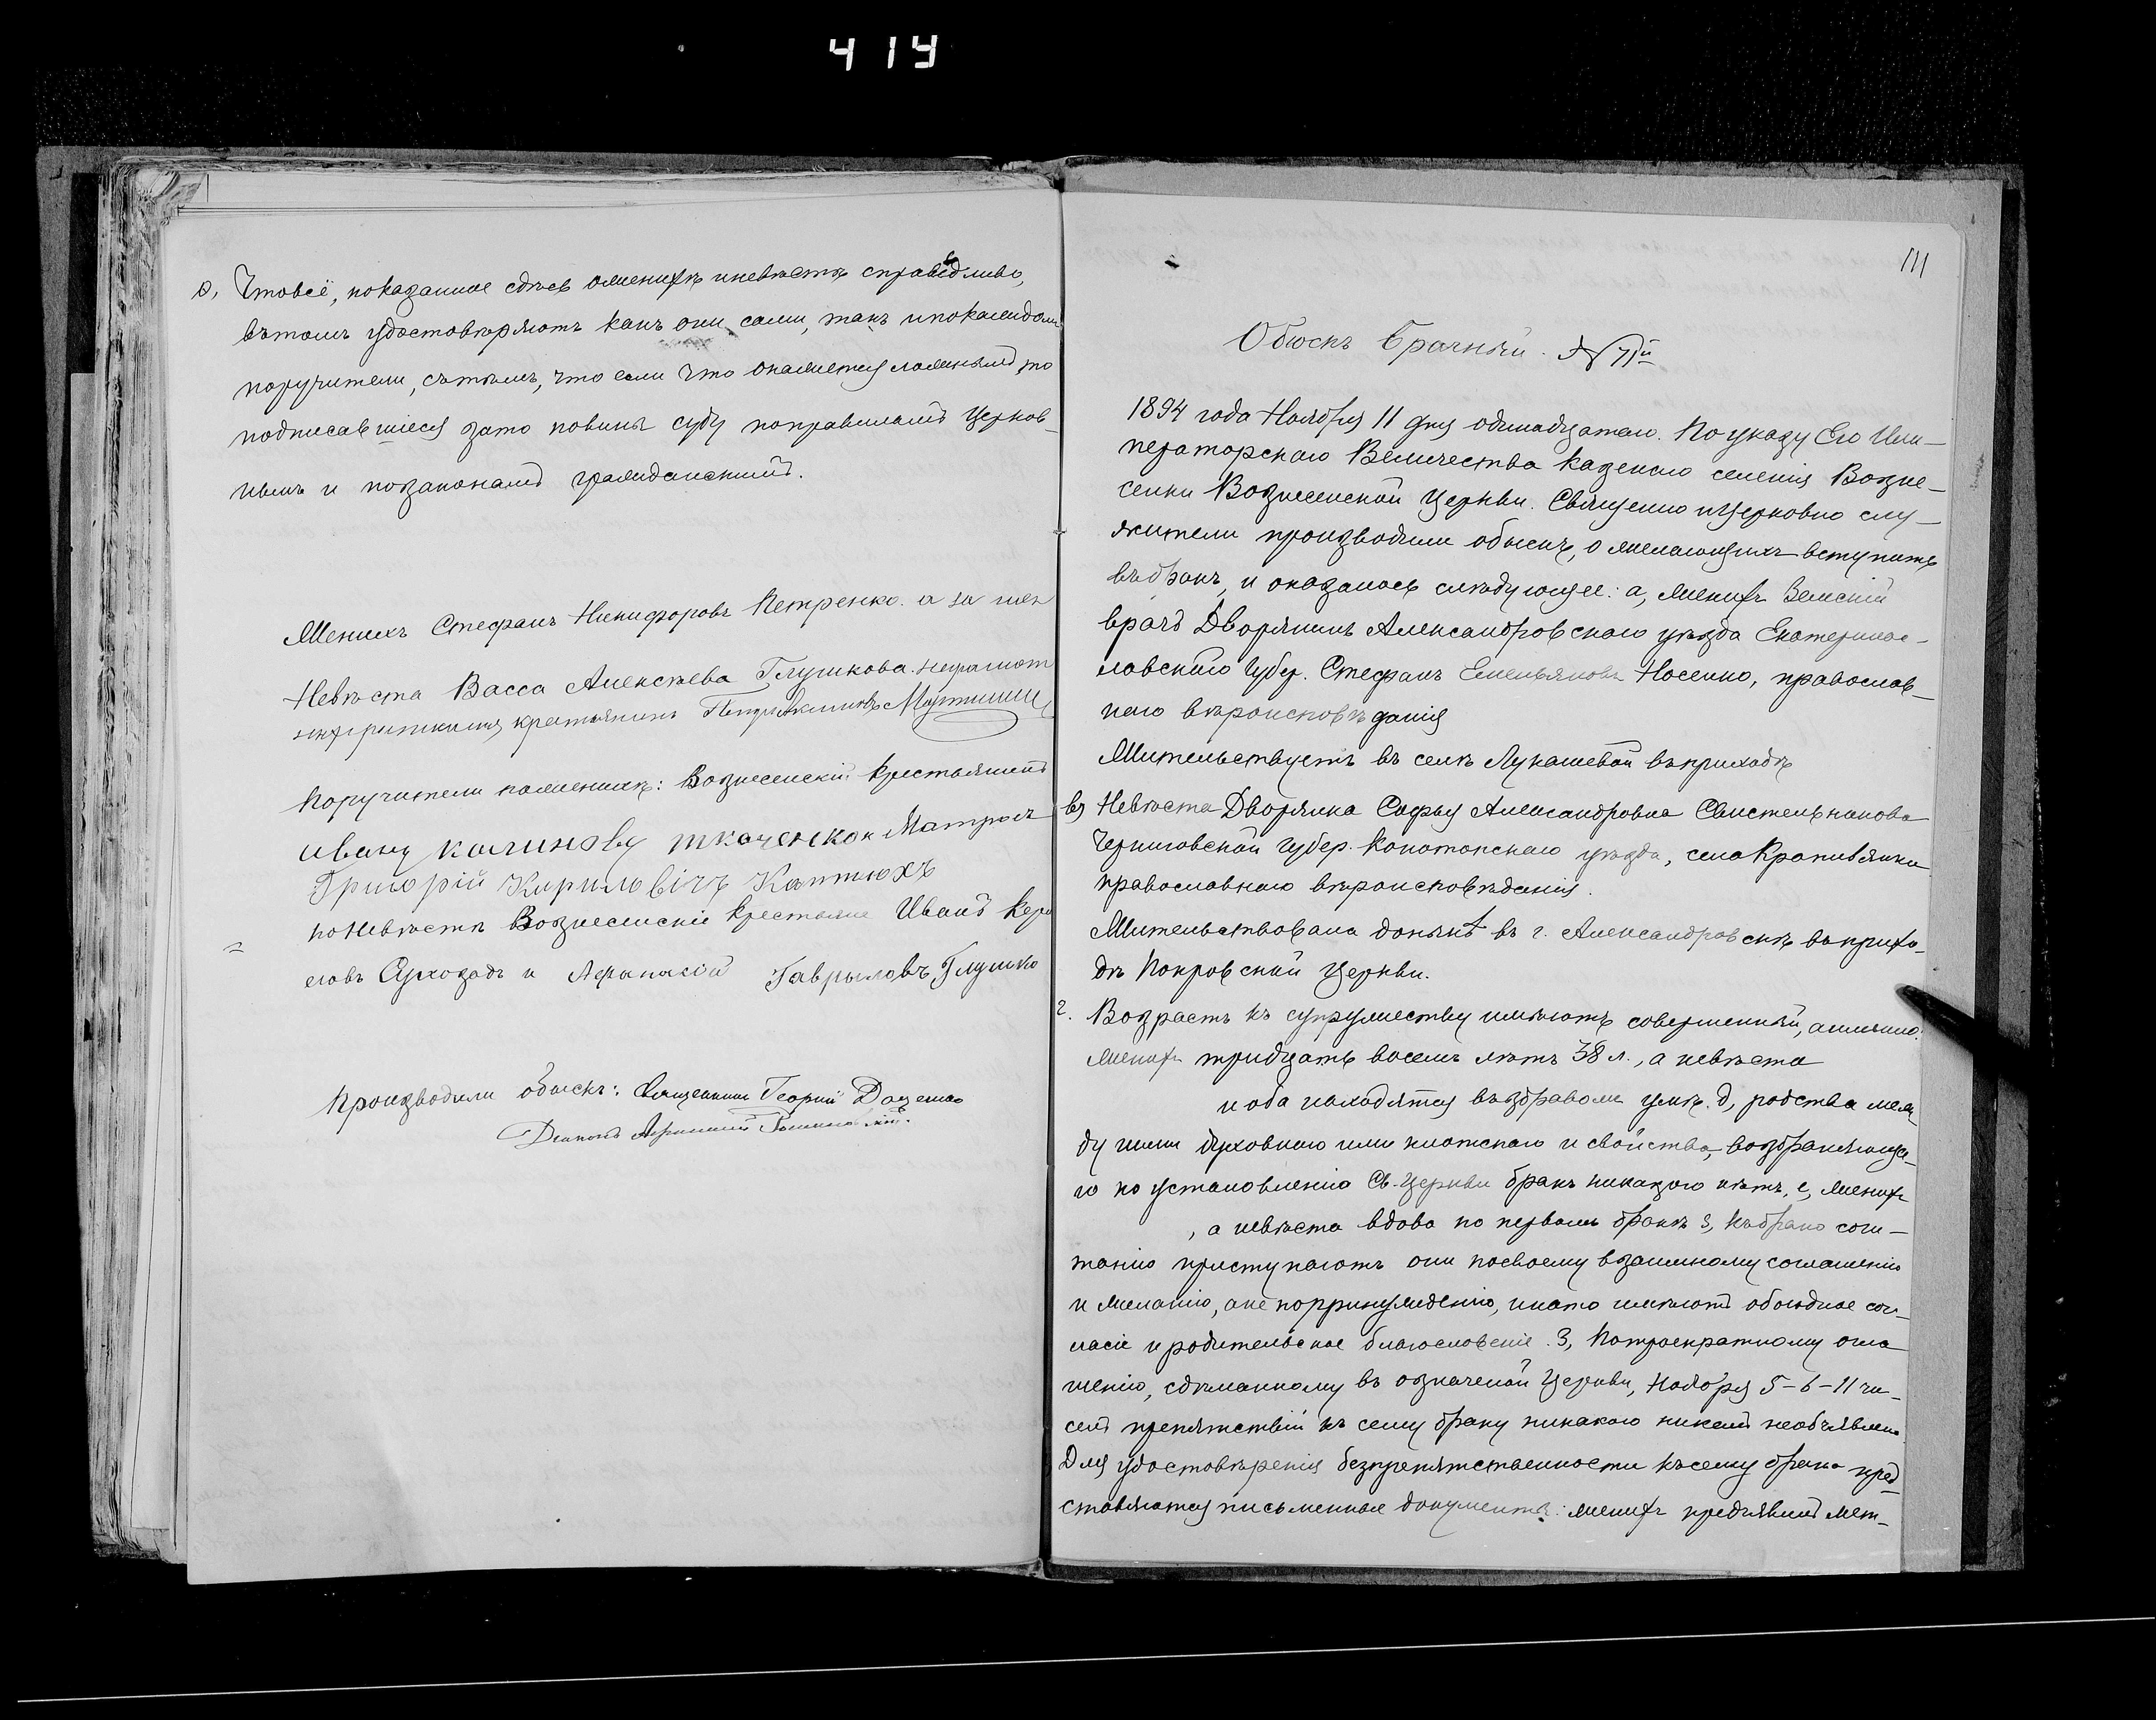 414
ѳ, Чтовсё, показанное сдѣсь оженихѣ иневѣстѣ справедливо,
вътомъ удостовѣряютъ какъ они сами, такъ ипокаждом
поручители, сътѣмъ, что если что окажется ложнымъ, то
подписавшіеся зато повины суду поправиламъ Церков-
нымъ и позаконамъ гражданскимъ.
Женихъ Стефанъ Никифоровъ Петренко. а за нея
Невѣста Васса Алексѣева Глушкова. неграмот
крестьянинъ
Поручители поженихѣ: Вознесенскій крестьянинъ
Ивану калинову ткаченкои Матросъ
Григорій Кириловічъ Каптюхъ
поНевѣстѣ Вознесенскіе крестьяне Иванъ Кери
еловъ Сухозадъ и Афанасій Гаврыловъ Глушко
Производили обыскъ: Священникъ Георгій Доценко
Діаконъ Афанасій
111
Обыскъ брачный. № 71й
1894 года Ноября 11 дня одинадцатаго. По указу Его Им-
ператорскаго Величества казенаго селенія Возне-
сенки Вознесенской Церкви. Священно ицерковно слу-
жители производили обыскъ, о желающихъ вступить
въбракъ, и оказалось слѣдующее: а, женихъ Земскій
врачъ Дворянинъ Александровскаго уѣзда Екатеринос-
лавскаго Губер. Стефанъ Емельяновъ Носенко, православ-
наго вѣроисповѣданія
Жительствуетъ въ селѣ Лукашевой въприходѣ
в, Невѣста Дворянка Софья Александровна Свистельникова
Черниговской Губер. Конотопскаго уѣзда, села Кропивянки
православнаго вѣроисповѣданія.
Жительствовала донынѣ въ г. Александровскѣ въприхо-
дѣ Покровской Церкви.
г. Возрастъ къ супружеству имѣютъ совершенный, аименно:
женихъ тридцать восемь лѣтъ 38 л., а невѣста
и оба находятся въздравомъ умѣ. д, родства меж
ду ними духовнаго или плотскаго и свойства, возбраняюща-
го по установленію Св. Церкви бракъ никакого нѣтъ. е, женихъ
, а невѣста вдова по первомъ бракѣ з, къбрако соче-
танію приступаютъ они посвоему взаимному согл​ашенію
и желанію, ане попринужденію, инато имѣютъ обоюдное сог-
ласіе и родительское благословеніе. З, Потроекратному огла
шенію, сдѣланному въ означеной Церкви, Ноября 5-6-11 чи-
селъ препятствій къ сему браку никакого никемъ необъявлено
Для удостовѣренія безпрепятственности късему браку пред
ставляются письменные документы: женихъ предъявилъ мет-